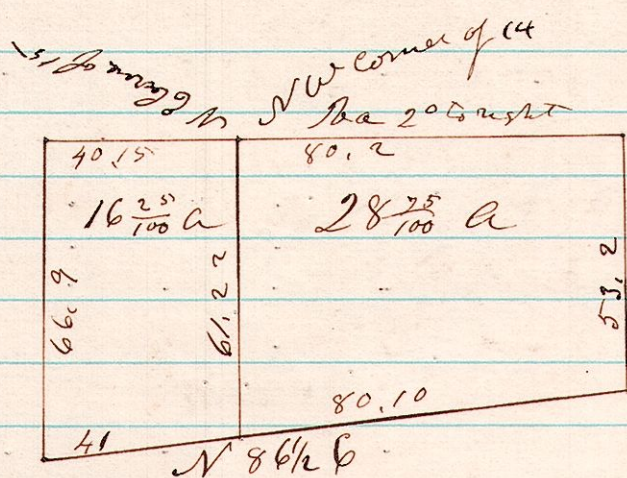 N E Corner of 15
N W Corner of 14
2° to right
40.15
80.2
16 25/100 a
28 75/100 a
66.9
61.22
53.2
80.10
41
N 86 1/2 E